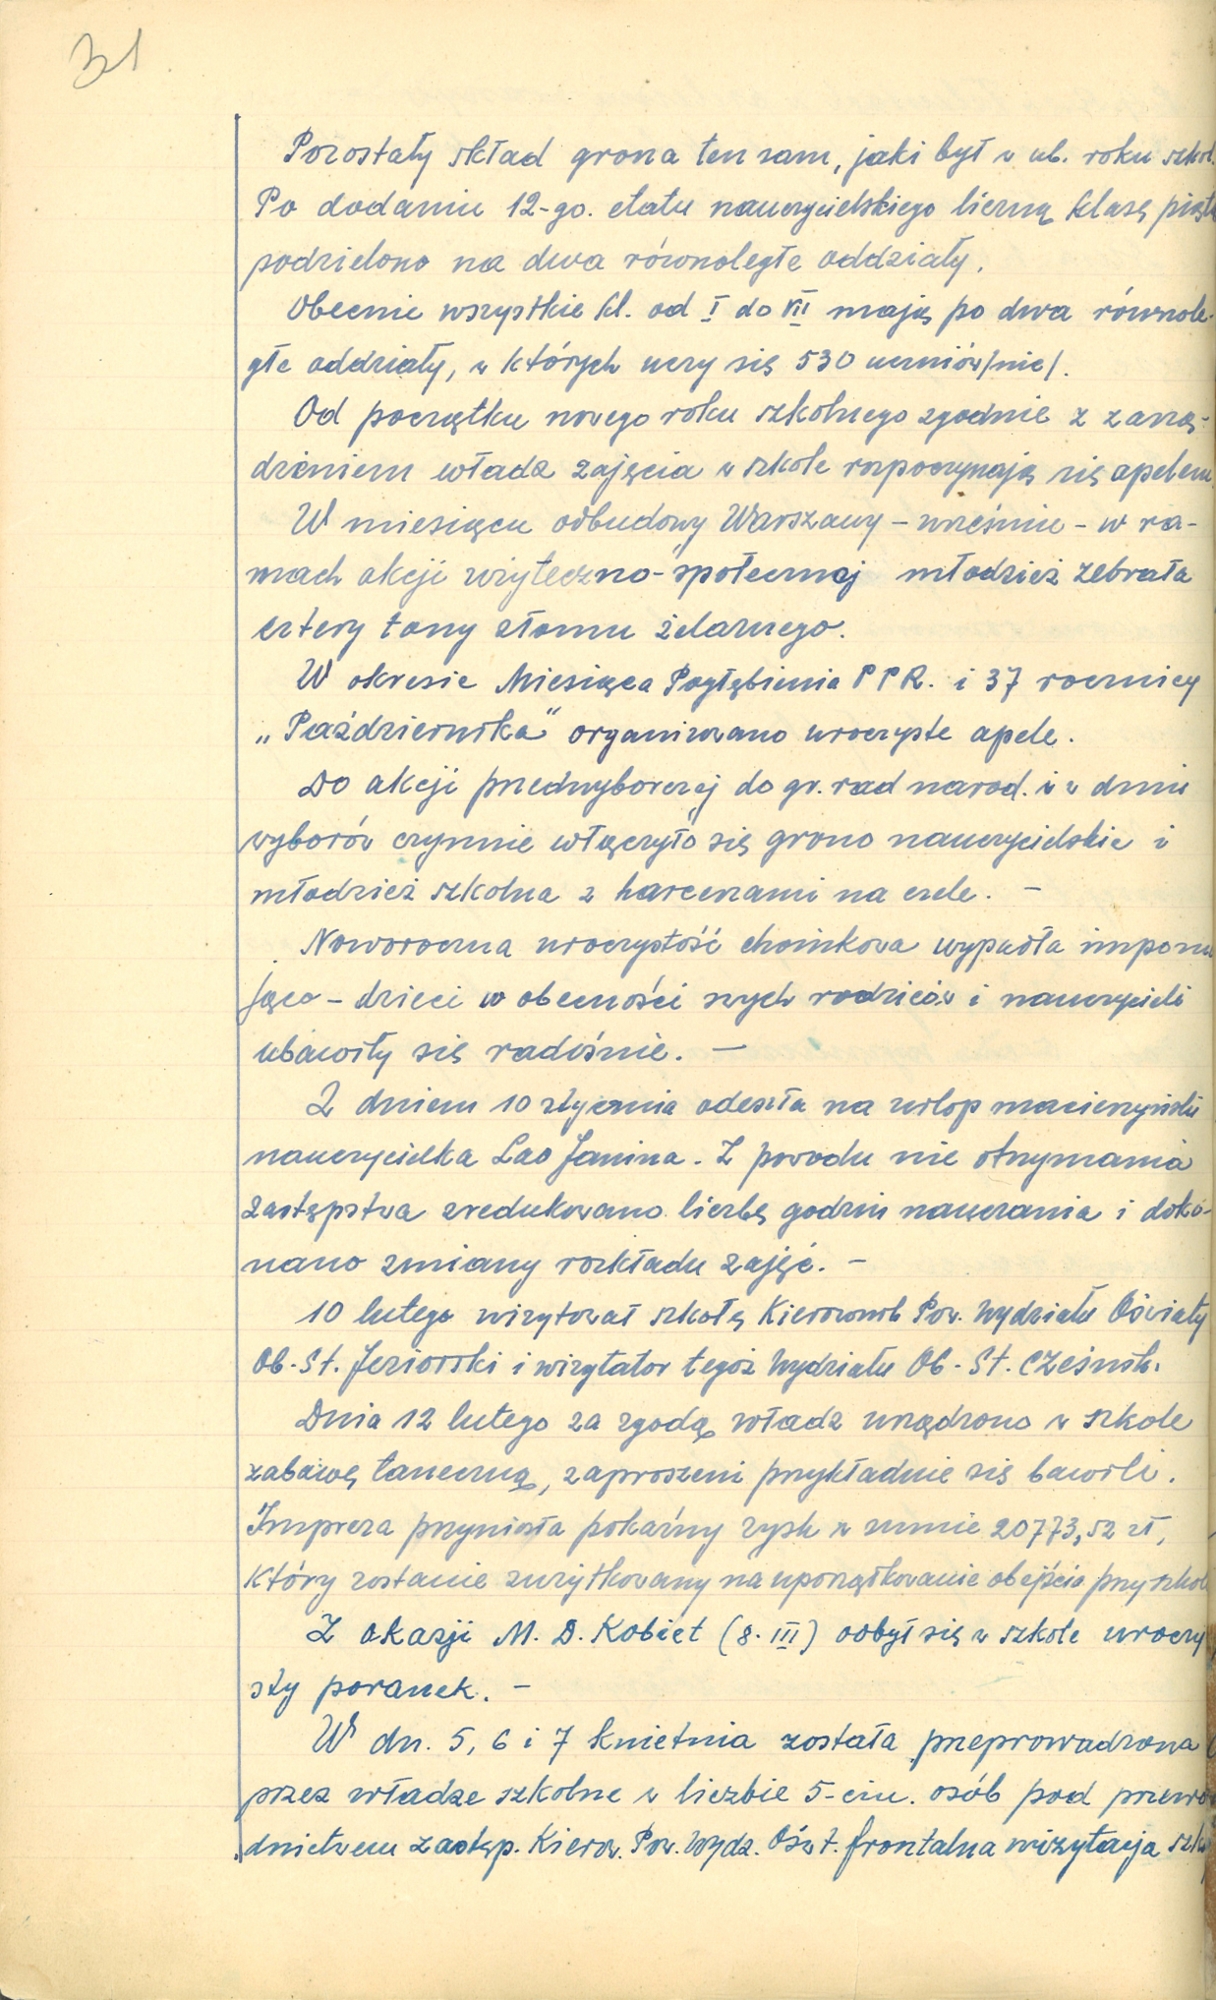 31
Pozostały skład grona ten sam, jaki był w ub. roku szkol.
Po dodaniu 12-go. etatu nauczycielskiego liczną klasę piątą
podzielono na dwa równoległe oddziały.
Obecnie wszystkie kl. od I do VII mają po dwa równole-
głe oddziały, w których uczy się 530 uczniów/nic/.
Od początku nowego roku szkolnego zgodnie z zarzą-
dzeniem władz zajęcia w szkole rozpoczynają się apelem.
W miesiącu odbudowy Warszawy – wrześniu – w ra-
mach akcji użyteczno-społecznej młodzież zebrała
cztery tony złomu żelaznego.
W okresie Miesiąca Pogłębienia P P R. i 37 rocznicy
„Października" organizowano uroczyste apele.
Do akcji przedwyborczej do gr. rad narod. i w dniu
wyborów czynnie włączyło się grono nauczycielskie i
młodzież szkolna z harcerzami na czele. –
Noworoczna uroczystość choinkowa wypadła imponu
jąco – dzieci w obecności swych rodziców i nauczycieli
ubawiły się radośnie. –
Z dniem 10 stycznia odeszła na urlop macierzyński
nauczycielka Lao Janina. Z powodu nie otrzymania
zastępstwa zredukowano liczbę godzin nauczania i doko-
nano zmiany rozkładu zajęć. –
10 lutego wizytował szkołę Kierownik Pow. Wydziału Oświaty
Ob. St. Jeziorski i wizytator tegoż Wydziału Ob. St. Cześnik.
Dnia 12 lutego za zgodą władz urządzono w szkole
zabawę taneczną, zaproszeni przykładnie się bawili.
Impreza przyniosła pokaźny zysk w sumie 20773,52 zł,
który zostanie zużytkowany na uporządkowanie obejścia przy szkol
Z okazji M. D. Kobiet (8. III) odbył się w szkole uroczy
sty poranek. –
W dn. 5, 6 i 7 kwietnia została przeprowadzona
przez władze szkolne w liczbie 5-ciu. osób pod przewo
dnictwem zastęp. Kierow. Pow. Wydz. Ośw t. frontalna wizytacja szk